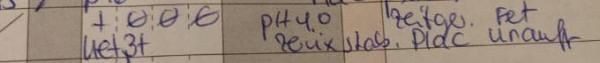 + ⊖ ⊖ ⊖ pH 4.0 zeitger. Fet
Ket3+ Zervix stab. Plac unauff